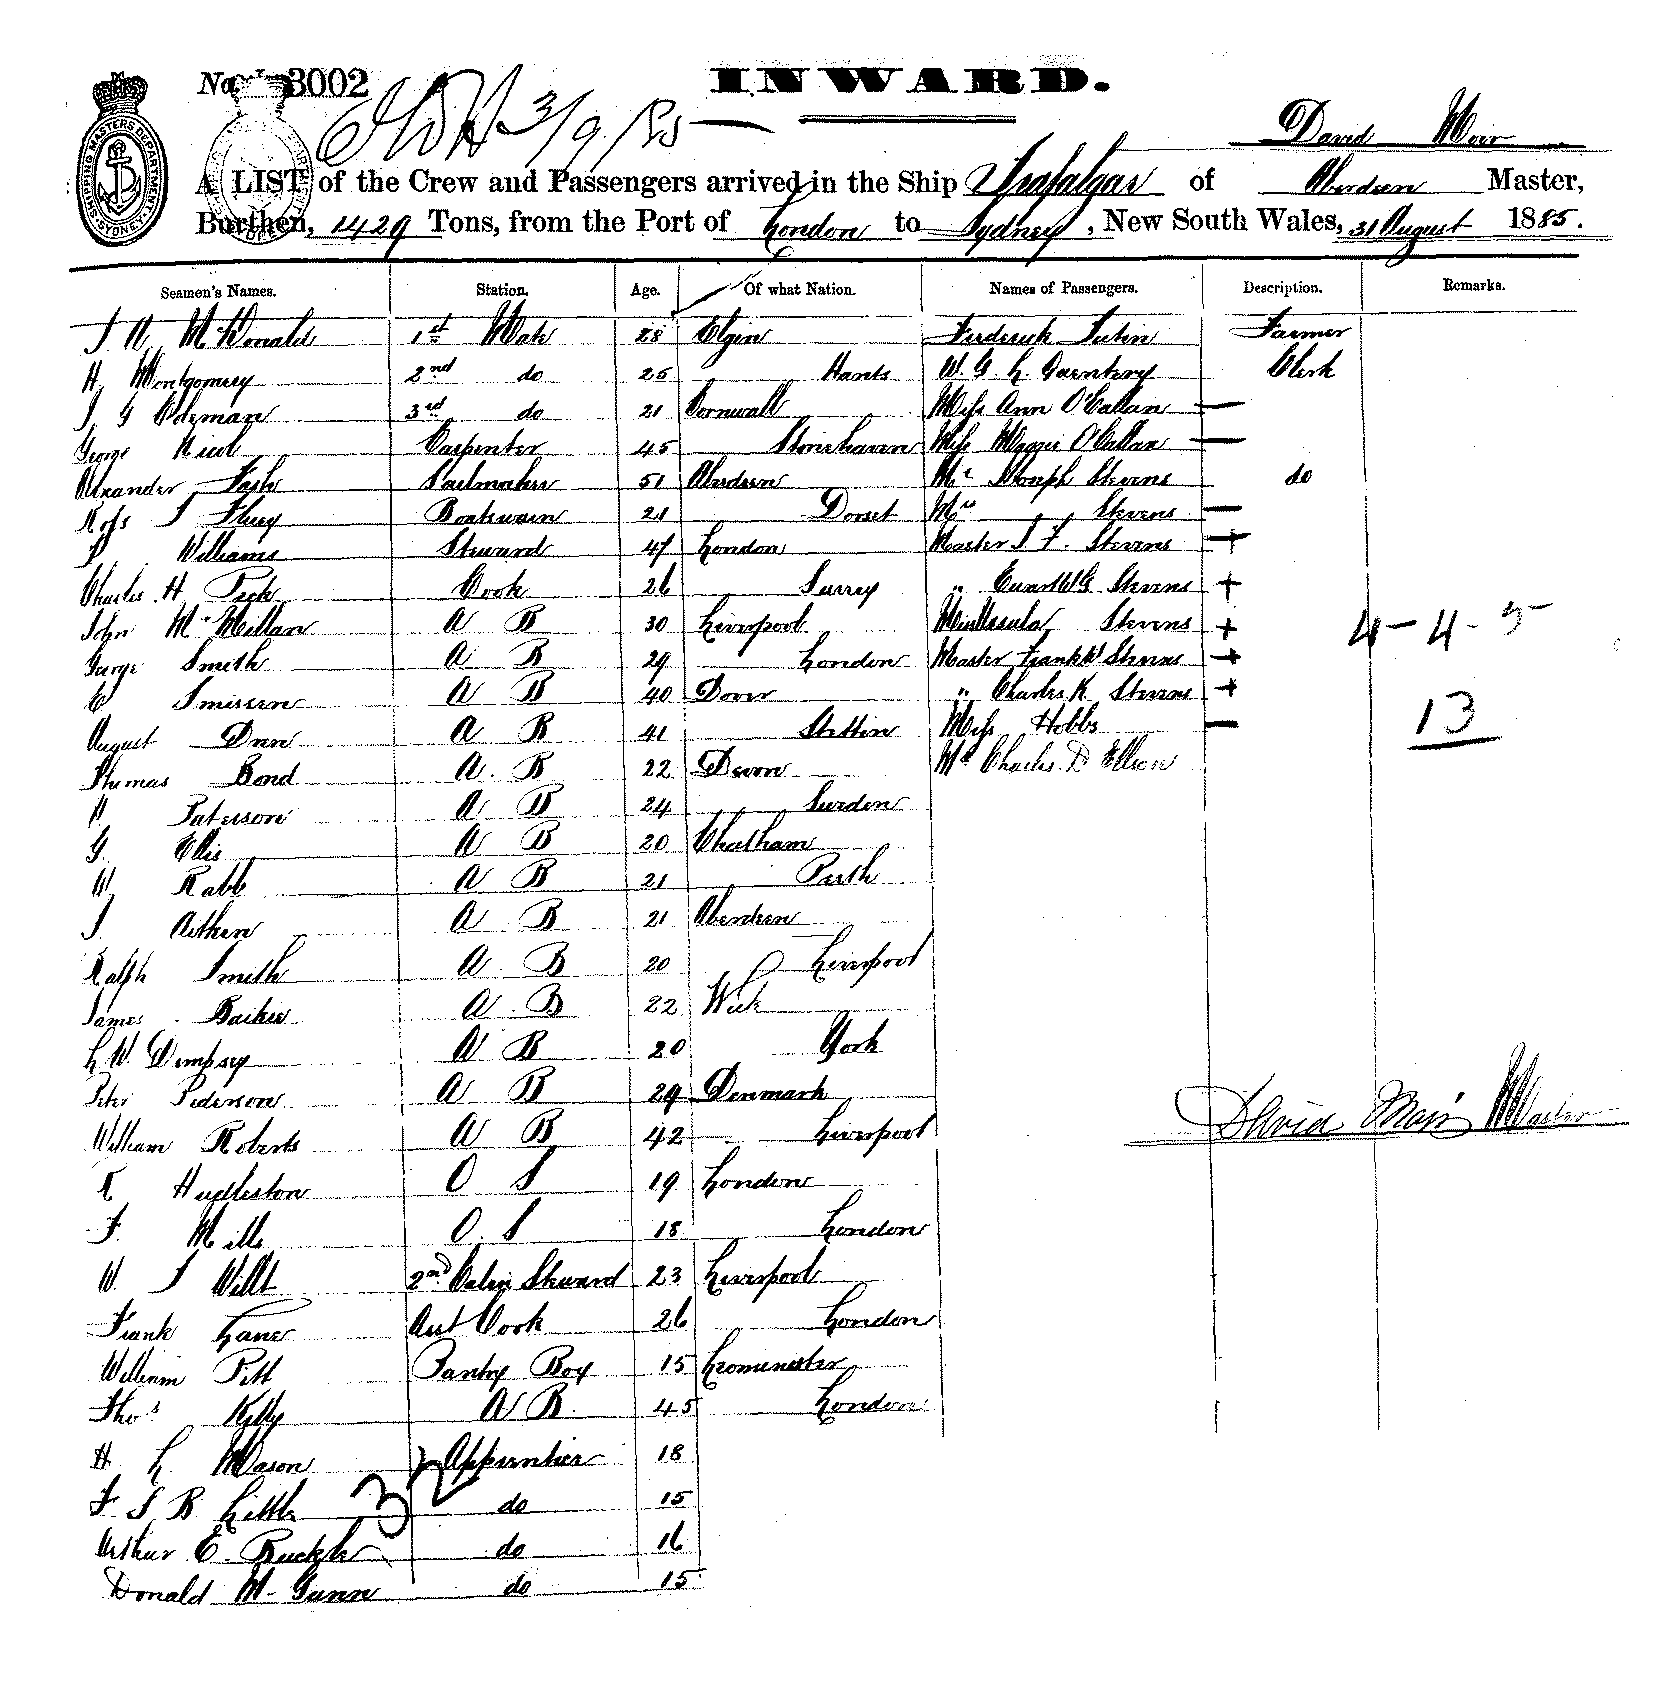 No. 3002
INWARD.
3/9/85
David Muir
A LIST of the Crew and Passengers arrived in the Ship Trafalgar of Aberdeen Master,
Burthen, 1429 Tons, from the Port of London to Sydney, New South Wales, 31 August 1885.
Seamen's Names. Station. Age. Of what Nation. Names of Passengers. Description. Remarks.
J A McDonald 1st Mate 28 Elgin Frederick Farmer
H Montgomery 2nd do 25 Hants W. G. L. Clerk
J G 3rd do 21 Cornwall Miss Ann O'Callan —
George Nicol Carpenter 45 Stonehaven Miss Maggie O'Callan —
Alexander Sailmaker 51 Aberdeen Mr Joseph Stevens do
Ross J Boatswain 21 Dorset Mrs Stevens —
Williams Steward 47 London Master J. F. Stevens +
Charles H Peck Cook 26 Surrey " Stevens +
John McMillan A B 30 Liverpool Stevens + 4 - 4 - 5
George Smith A B 29 London Master Frank W Stevens +
C Smissen A B 40 Dover " Charles K Stevens + 13
August A B 41 Stettin Miss Hobbs —
Thomas Bond A. B 22 Devon Mr Charles D
A Paterson A B 24 Sweden
G. Ellis A B 20 Chatham
W Rabb A B 21 Perth
J. Aitken A B 21 Aberdeen
Ralph Smith A. B 20 Liverpool
James Baikie A. B 22 Wick
L W Dempsey A B 20 York
Peter Pederson A B 29 Denmark
David Muir Master
William Roberts A B 42 Liverpool
R Hudleston O S 19 London
F. Mills O. S 18 London
W. J Willt 2nd Cabin Steward 23 Liverpool
Frank Lane Ast Cook 26 London
William Pitt Pantry Boy 15 Leominster
Thos Kelly A B. 45 London
H L Mason Apprentice 18
F J B Little 3 do 15
Arthur E. Buckle do 16
Donald McGunn do 15